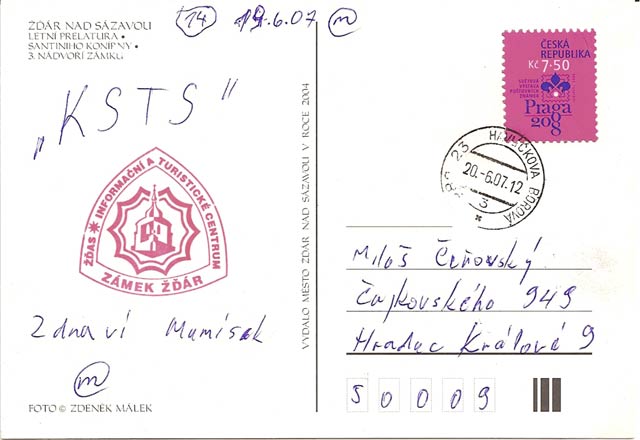 ŽĎÁR NAD SÁZAVOU
LETNÍ PRELATURA •
SANTINIHO KONÍRNY •
3. NÁDVOŘÍ ZÁMKU
14 19.6.07 m
„KSTS"
ŽĎAS ✳ INFORMAČNÍ A TURISTICKÉ CENTRUM
ZÁMEK ŽĎÁR
Zdraví Mumísek
m
FOTO © ZDENĚK MÁLEK
VYDALO MĚSTO ŽĎÁR NAD SÁZAVOU V ROCE 2004
ČESKÁ
REPUBLIKA
Kč 7·50
SVĚTOVÁ
VÝSTAVA
POŠTOVNÍCH
ZNÁMEK
Praga
2008
582 23 HAVLÍČKOVA BOROVÁ
20.-6.07.12
3
*
Miloš Čeňovský
Čajkovského 949
Hradec Králové 9
50009